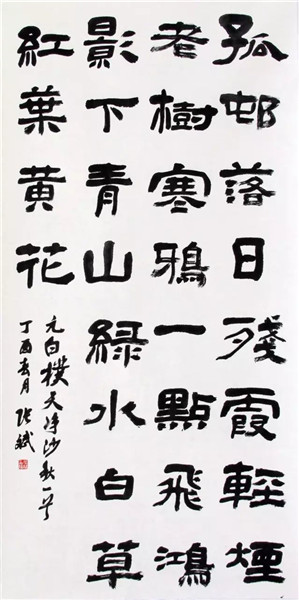 孤邨落日殘霞輕煙
老樹寒鴉一點飛鴻
影下青山綠水白草
紅葉黃花
元白樸天净沙秋一首
丁酉春月